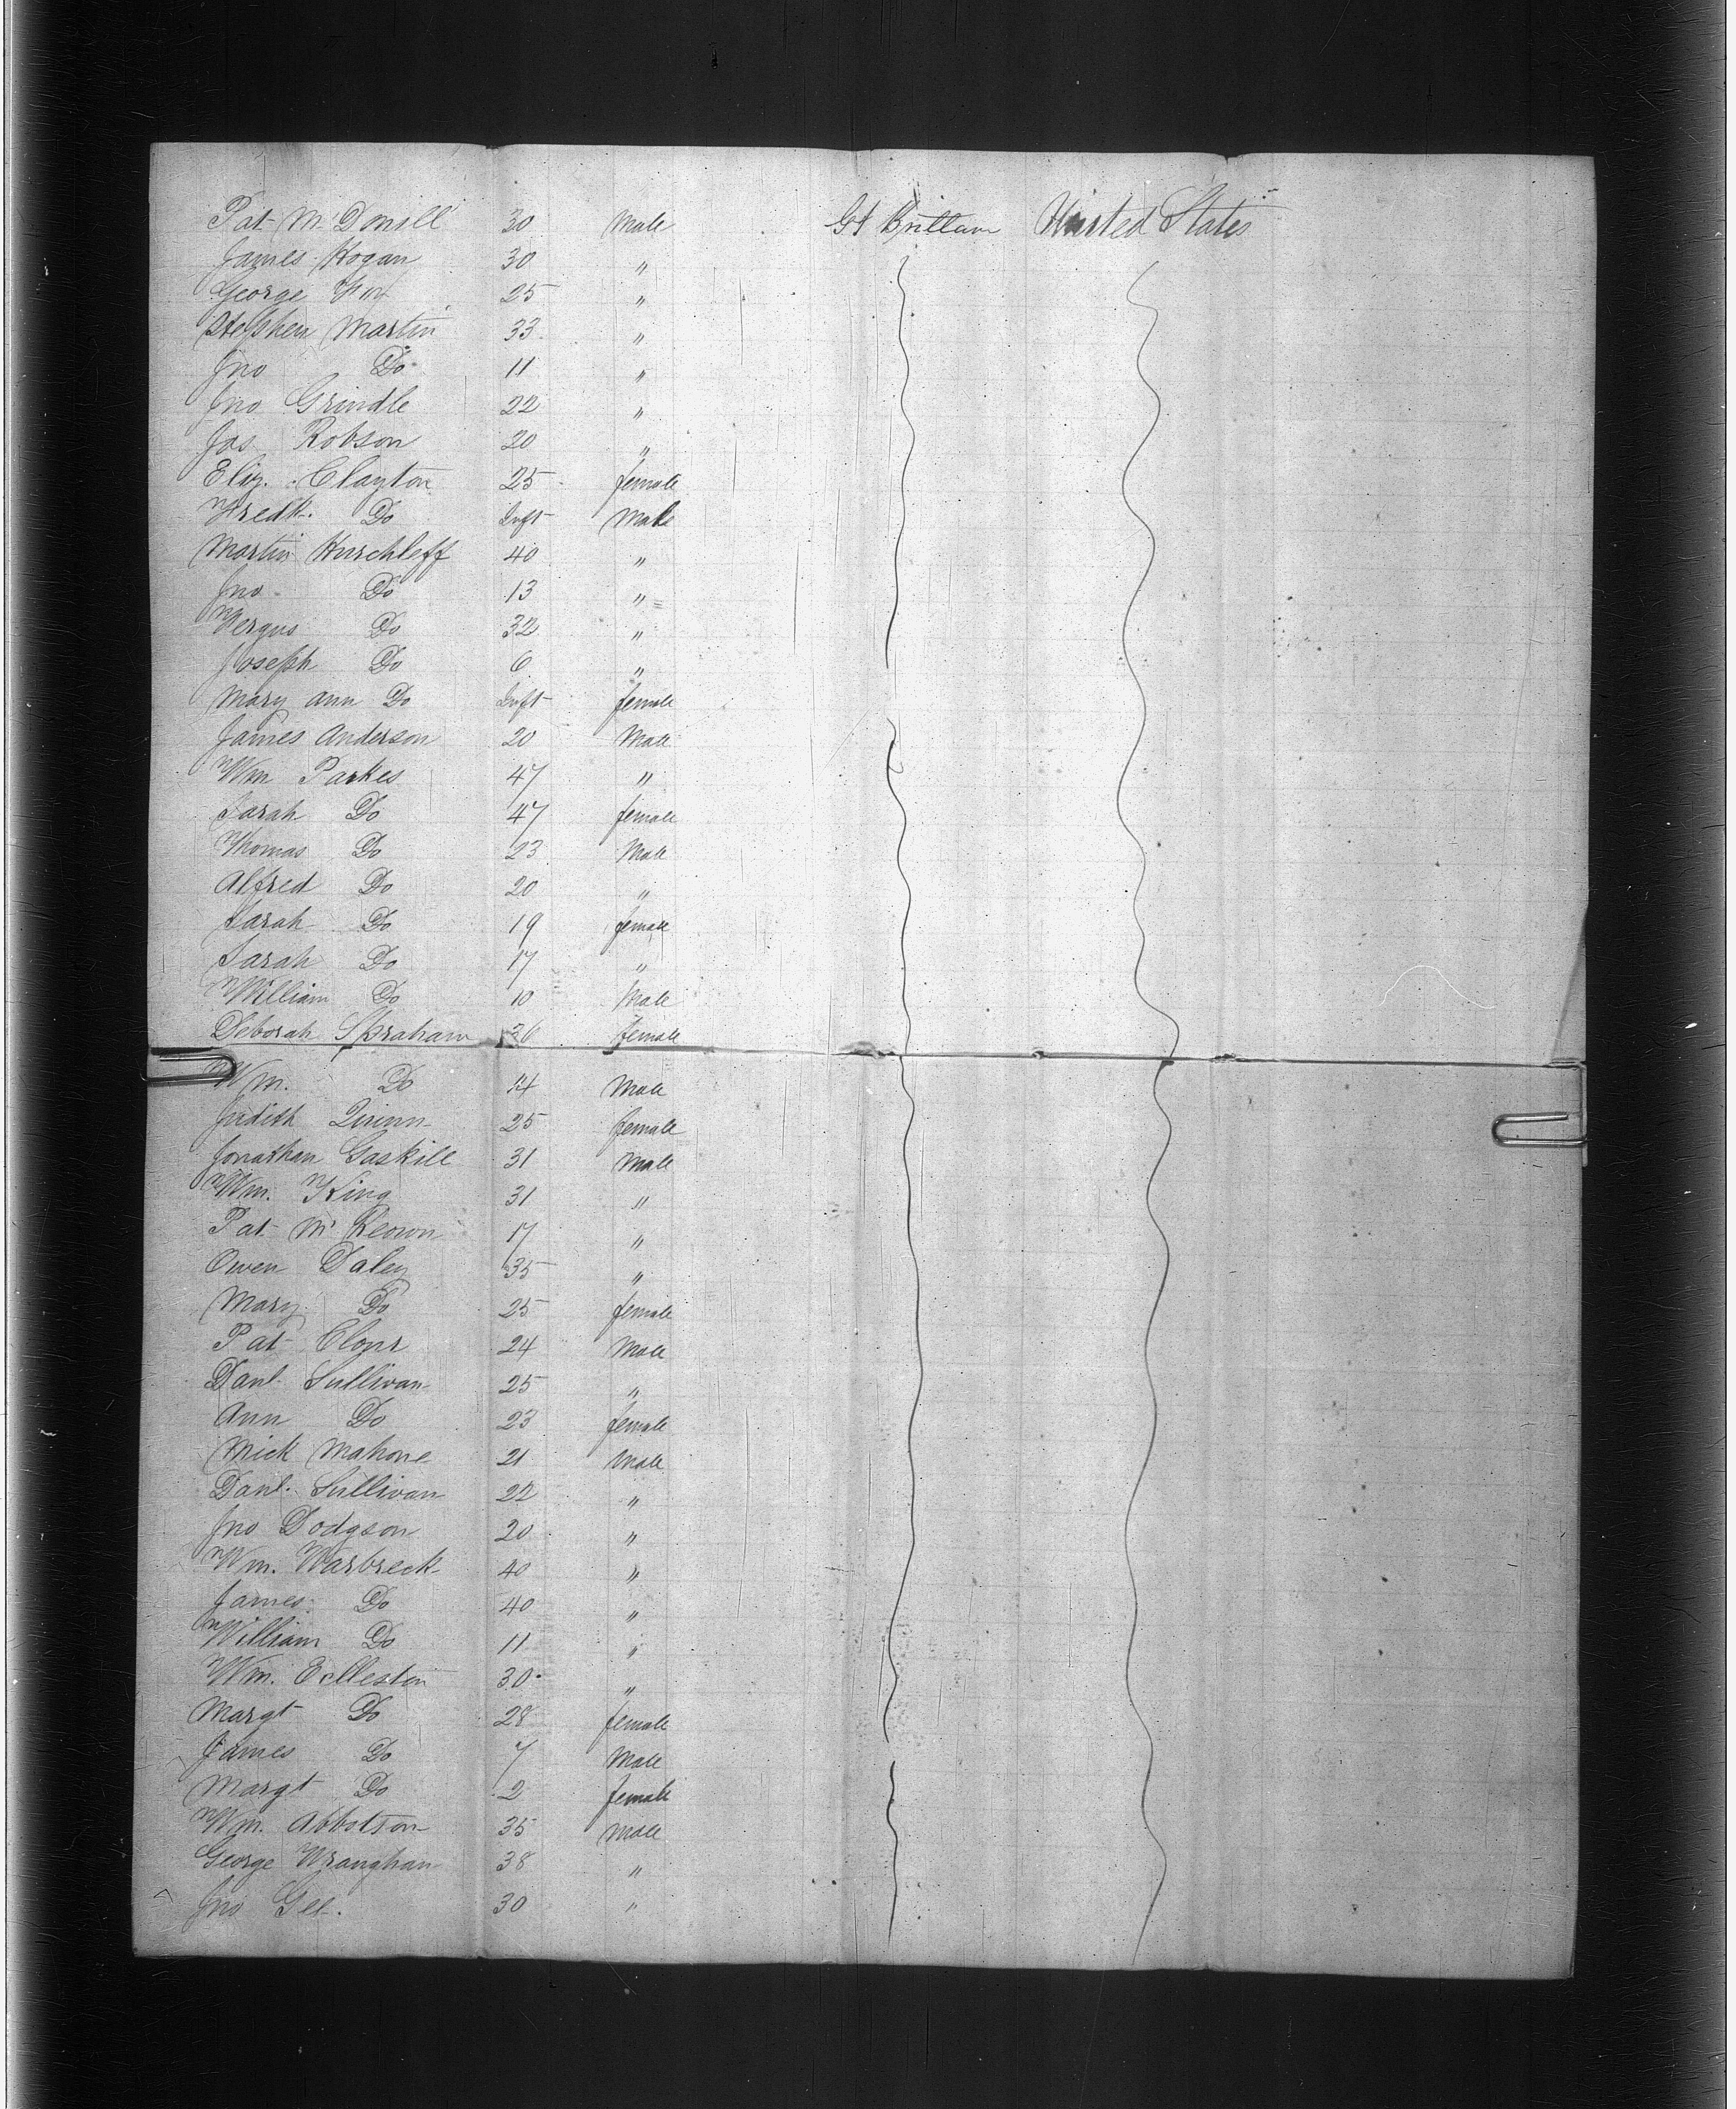 Pat McDonill 30 Male Gt Brittain United States
James Hogan 30 "
George Fox 25 "
Stephen Martin 33 "
Jno Do 11 "
Jno Grindle 22 "
Jos Robson 20 "
Eliz. Clayton 25 female
Fredk. Do Inft Male
Martin Hirschleff 40 "
Jno Do 13 "
Fergus Do 32 "
Joseph Do 6 "
Mary Ann Do Inft female
James Anderson 20 Male
Wm Parkes 47 "
Sarah Do 47 female
Thomas Do 23 Male
Alfred Do 20 "
Sarah Do 19 female
Sarah Do 17 "
William Do 10 Male
Deborah Spraham 36 female
Wm. Do 14 Male
Judith Quinn 25 female
Jonathan Gaskill 31 Male
Wm. King 31 "
Pat McKeown 17 "
Owen Daley 35 "
Mary Do 25 female
Pat 24 Male
Danl. Sullivan 25 "
Ann Do 23 female
Mick Mahone 21 Male
Danl. Sullivan 22 "
Jno Dodgson 20 "
Wm. Warbreck 40 "
James Do 40 "
William Do 11 "
Wm. Eclleston 30 "
Margt Do 28 female
James Do 7 Male
Margt Do 2 female
Wm. Abbotson 35 Male
George Wranghan 38 "
Jno Gee. 30 "